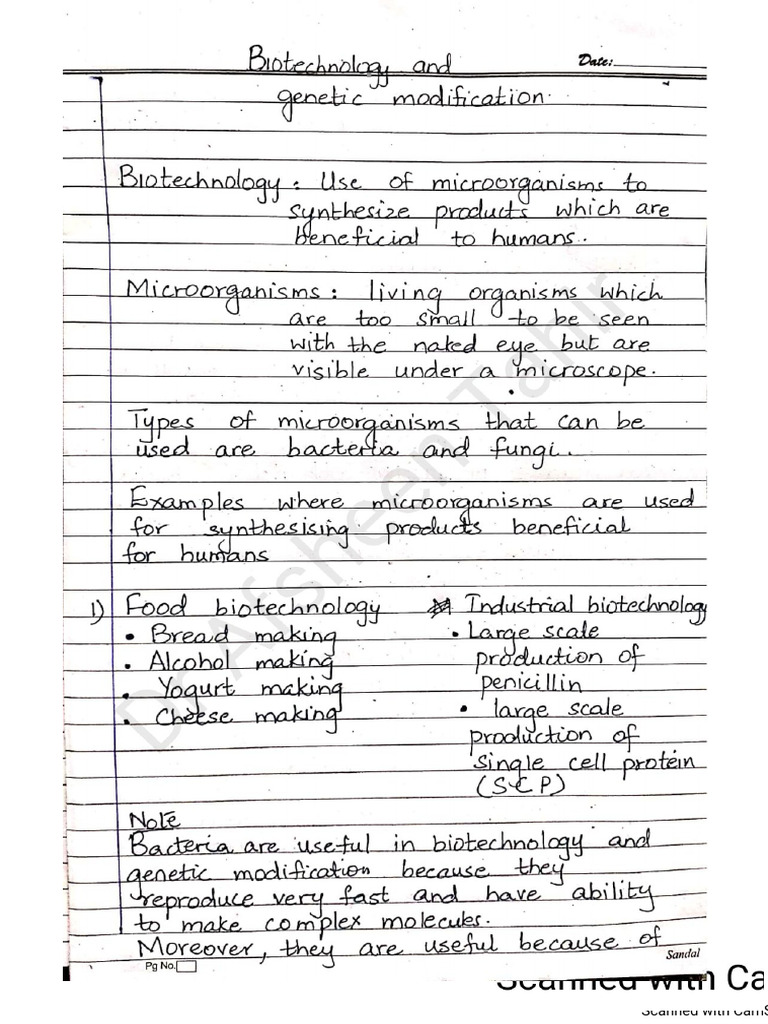 Biotechnology and
Date:
genetic modification.
Biotechnology : Use of microorganisms to
synthesize products which are
beneficial to humans.
Microorganisms : living organisms which
are too small to be seen
with the naked eye but are
visible under a microscope.
Types of microorganisms that can be
used are bacteria and fungi.
Examples where microorganisms are used
for synthesising products beneficial
for humans
1) Food biotechnology
• Bread making
• Alcohol making
• Yogurt making
• Cheese making
Industrial biotechnology
• Large scale
production of
penicillin
• large scale
production of
single cell protein
(SCP)
Note
Bacteria are useful in biotechnology and
genetic modification because they
reproduce very fast and have ability
to make complex molecules.
Moreover, they are useful because of
Sandal
Pg No.
Dr. Afsheen Tahir
Scanned with Ca
Scanned with CamS